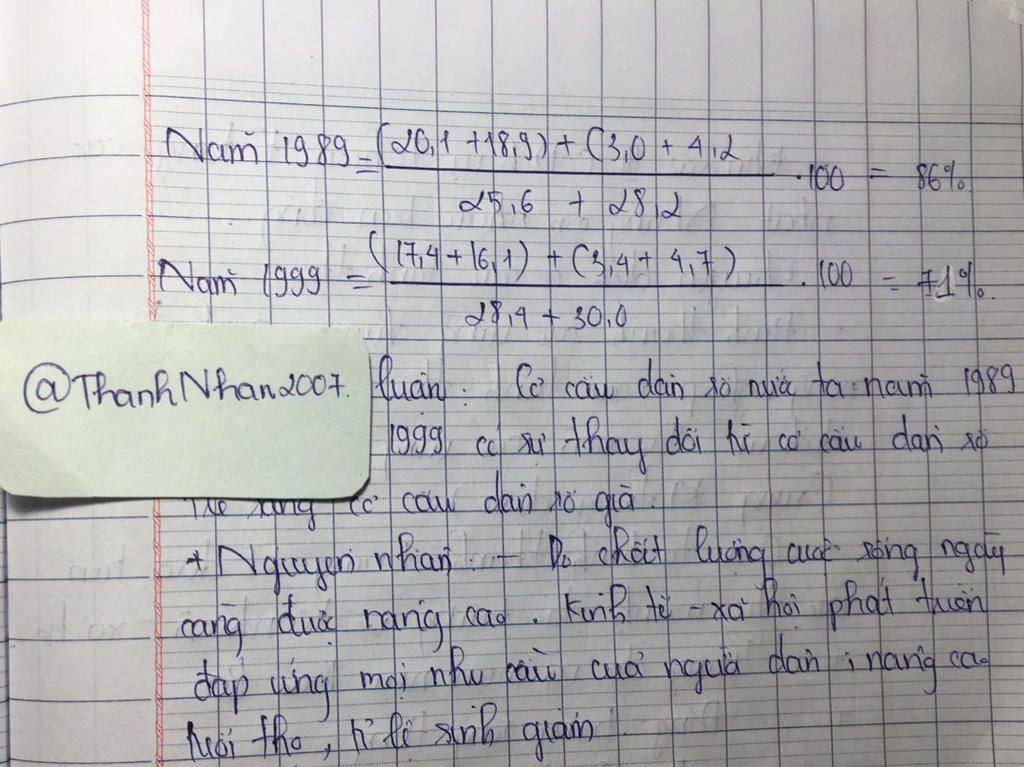 Năm 1989 = (20,1 + 18,9) + (3,0 + 4,2 / 25,6 + 28,2 . 100 = 86%
Năm 1999 = (17,4 + 16,1) + (3,4 + 4,7) / 28,4 + 30,0 . 100 = 71%.
@ThanhNhan2007. luận: Cơ cấu dân số nước ta năm 1989
1999 có sự thay đổi từ cơ cấu dân số
trẻ sang cơ cấu dân số già.
+ Nguyên nhân: - Do chất lượng cuộc sống ngày
càng được nâng cao. Kinh tế - xã hội phát triển
đáp ứng mọi nhu cầu của người dân; nâng cao
tuổi thọ, tỉ lệ sinh giảm